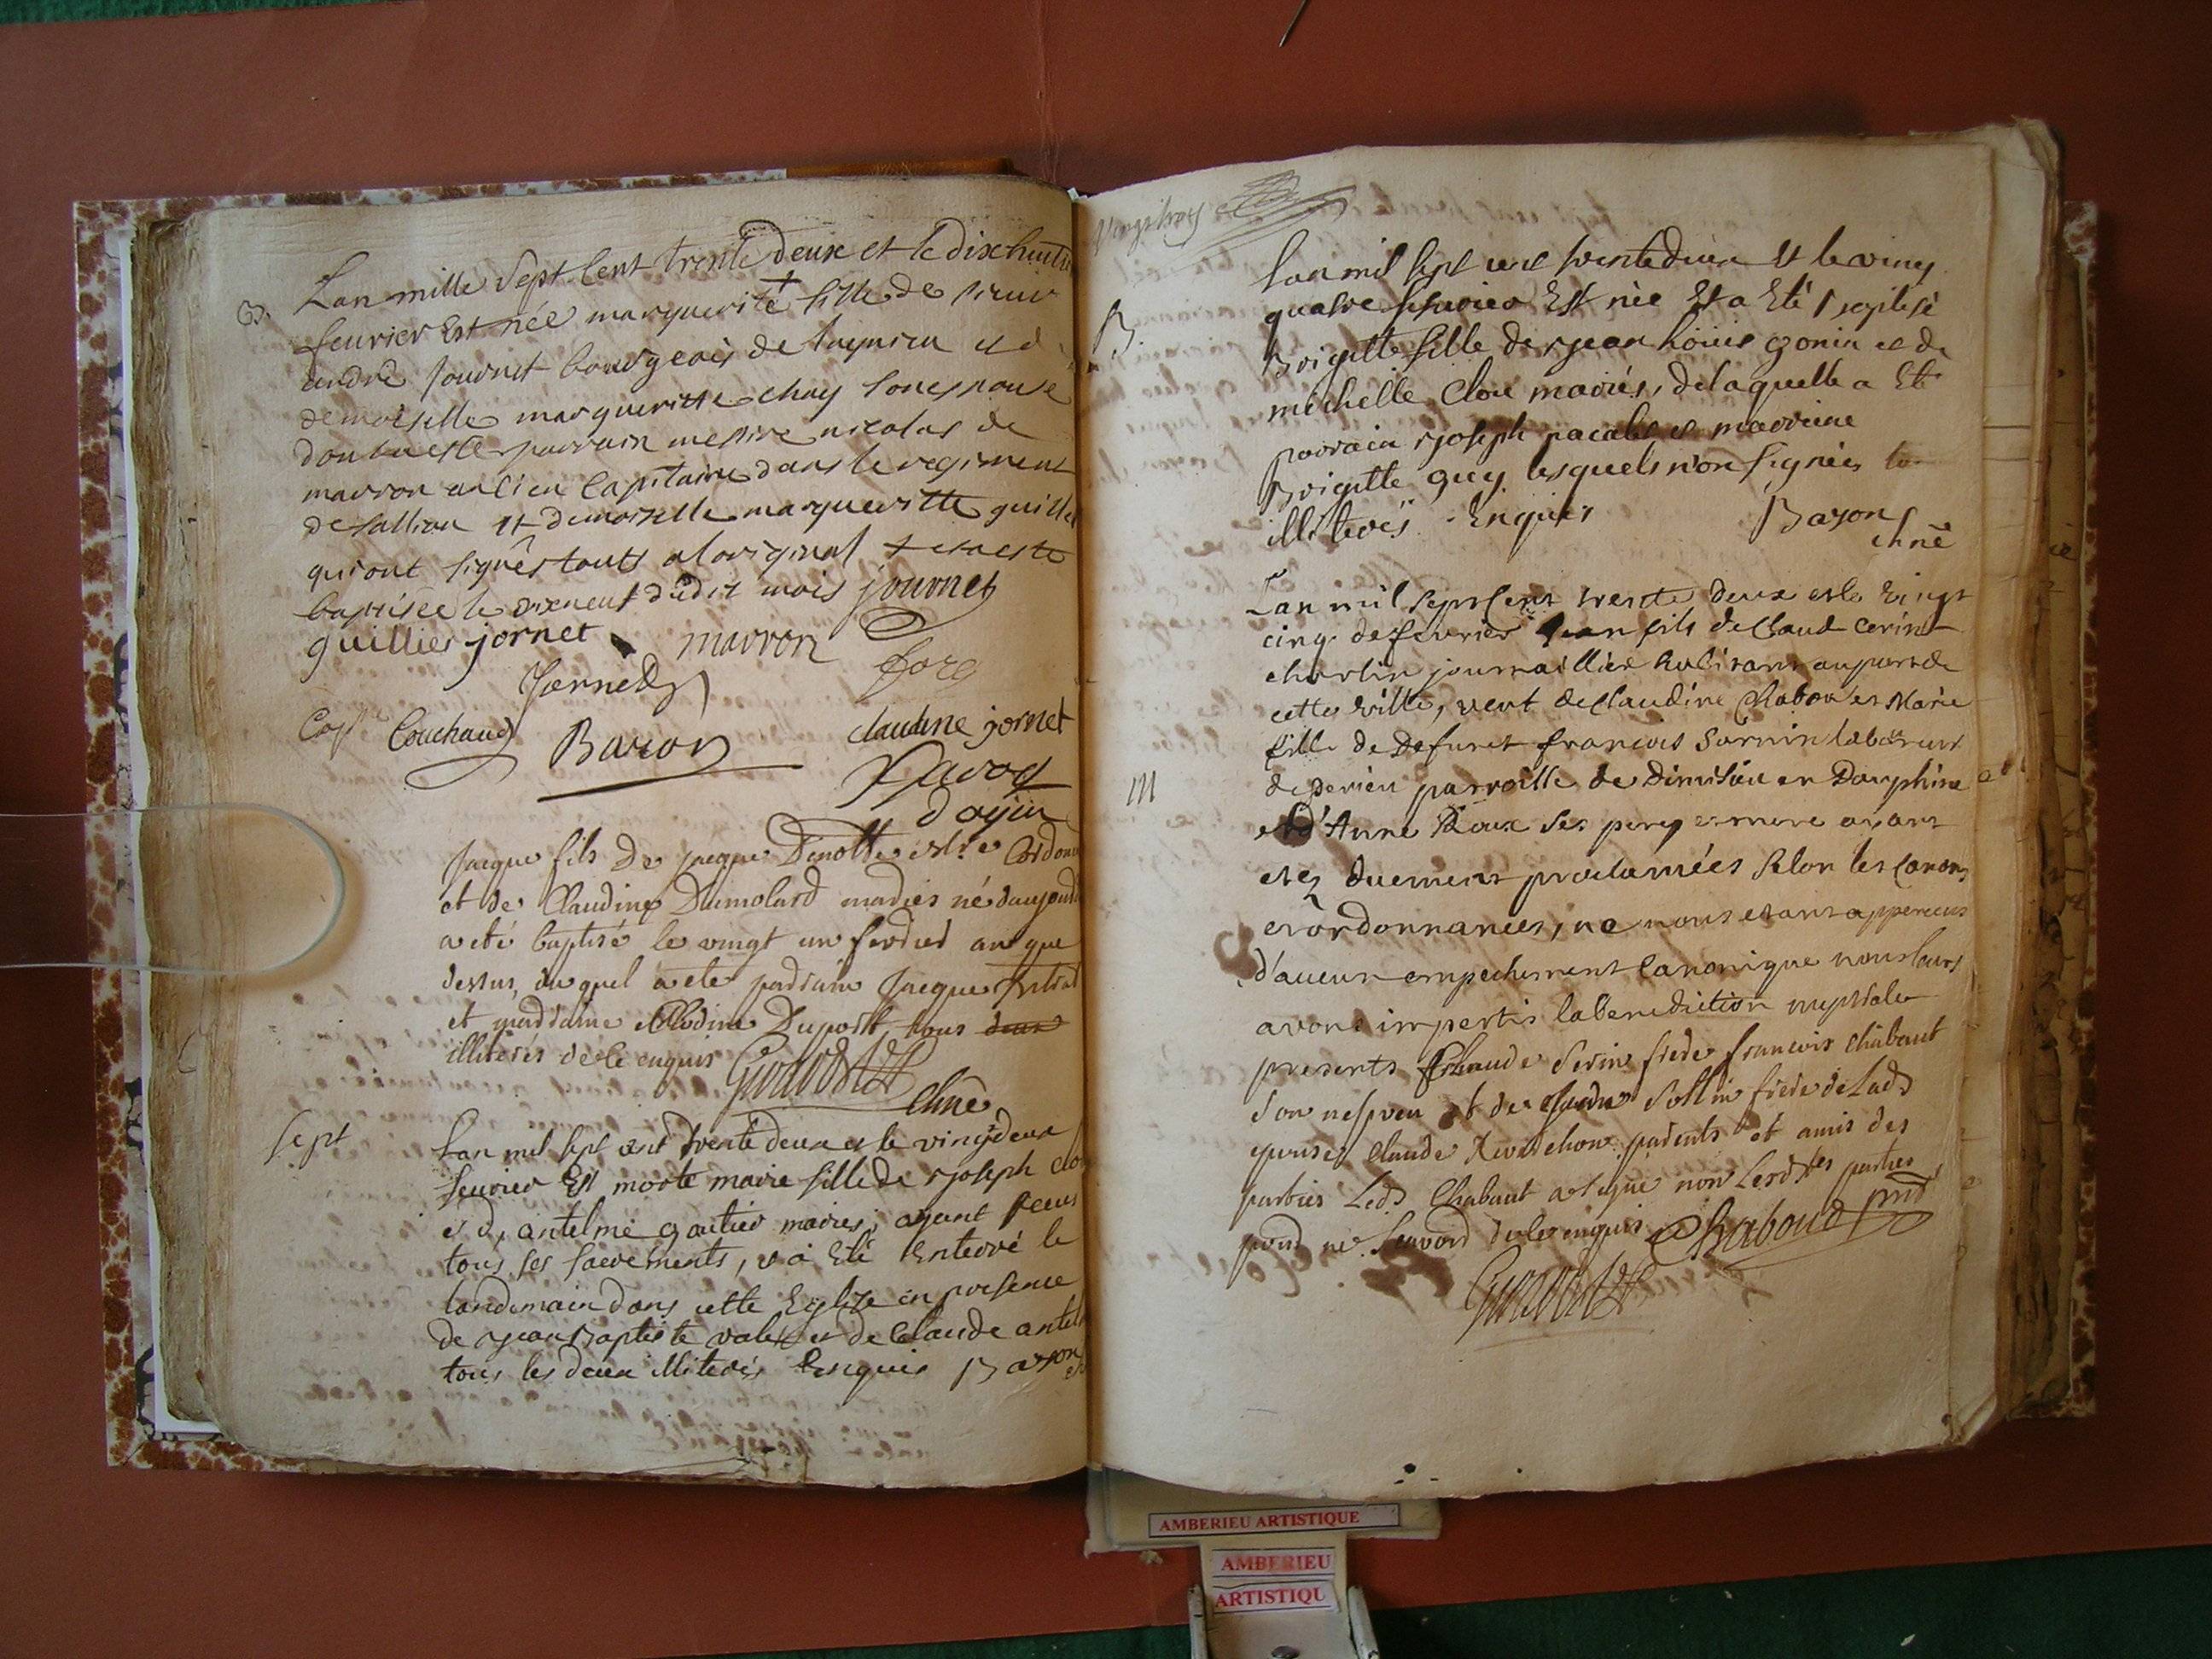 B.
Lan mille Sept Cent trente Deux et le dix huitie
feurier Est née marguerite + fille de sieur
andré Journet bourgeois de lagnieu et d
demoiselle margueritte chay son espouse
dont a este parrain messire nicolas de
marron ancien Capitaine dans le regiment
de sallian et demoiselle margueritte guillie
qui ont signés touts a loriginal + et a este
baptisée le dixneuf dudit mois journet
guillier jornet marron
Jornet
Couchaud Baron claudine jornet
Jacque fils De jacque Dinotte Cordon
et de Claudine Dumolard mariés né daujourd
a eté baptisé le vingt un fevrier an que
dessus, duquel a ete parrain Jacque
et marraine Clodine Dupost, tous deux
illiterés de ce enquis
chñe
Sept
Lan mil sept cent trente deux et le vingtdeux
feurier Est morte marie fille de rjoseph clo
et d, antelme gautier mariés, ayant receus
tous ses sacrements, et a Eté Enterré le
landemain dans cette Eglise en presence
de rjean Baptiste valet et de Claude antel
tous les deux illiterés Enquis Baron
vingt trois
B.
Lan mil sept cent trente deux et le ving
quatre feurier Est née Et a Eté baptisé
Brigitte fille de rjean Louis gonin et de
michelle Clou mariés, de laquelle a Eté
parrain rjoseph pacalet et marrine
Brigitte guy, lesquels n'on signés
illiterés Enquis Baron
chñe
M
Lan mil sept Cent trente deux et le Vingt
cinq de fevrier Jean fils de Claud Cerin
charlin journaillier habitant au port de
cette ville, veuf de Claudine Chabou et Marie
fille de Defunct francois Sornin laboureur
de perieu parroisse de Dimisieu en Dauphine
et d'Anne Roux ses pere et mere ayant
etez duement proclamées selon les Canons
et ordonnances, ne nous etant apperceus
d'aucun empechement Canonique nous leurs
avons impertis la benediction nuptiale
presents Claude Serin frere francois Chabout
son nespveu et de Sollin frere de Lad
epouse, Claude parents et amis des
parties Led Chabout a signé non Lesd tes parties
pour ne scavoir de ce enquis Chaboud pnt
AMBERIEU ARTISTIQUE
AMBERIEU
ARTISTIQU